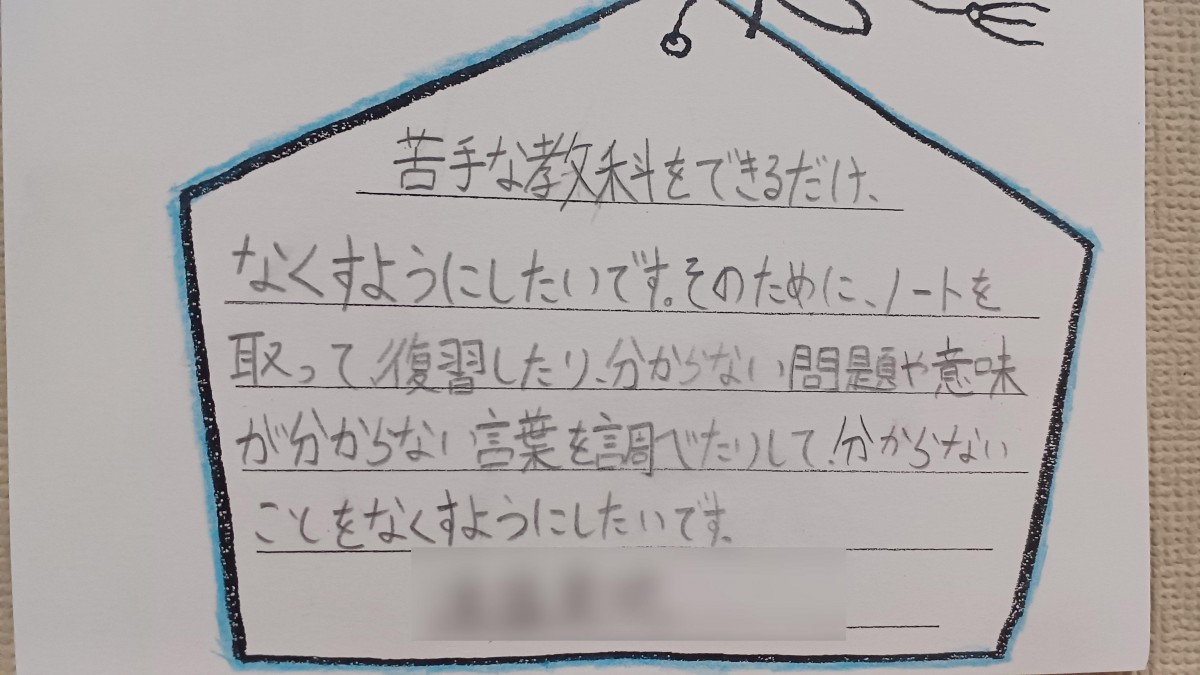 苦手な教科をできるだけ、
なくすようにしたいです。そのために、ノートを
取って、復習したり、分からない問題や意味
が分からない言葉を調べたりして、分からない
ことをなくすようにしたいです。